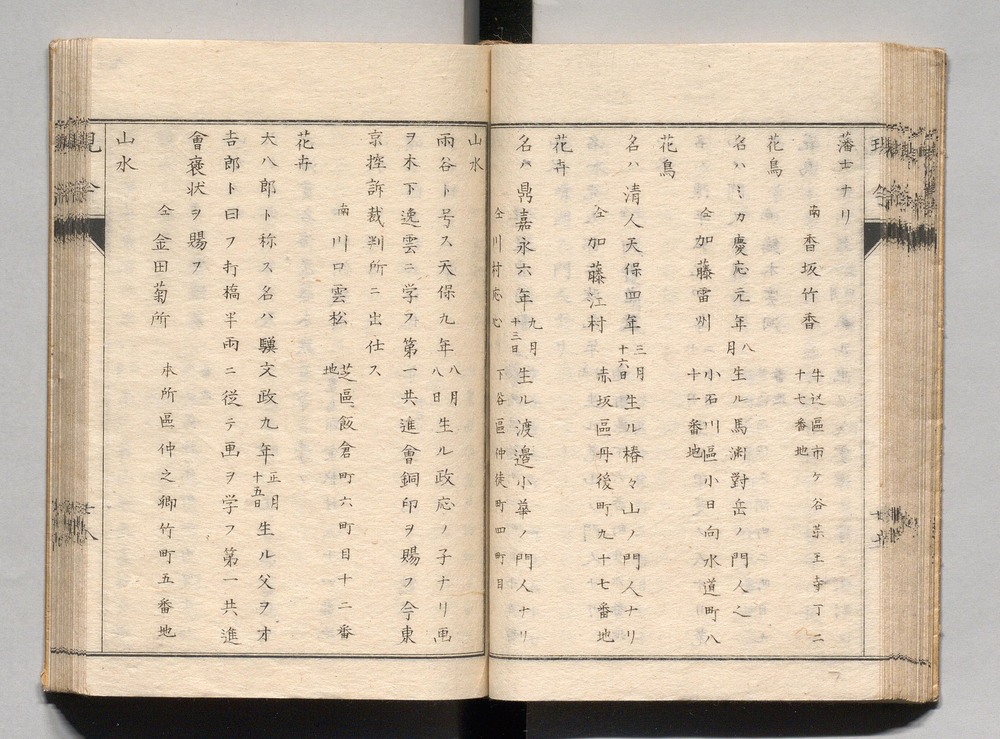 藩士ナリ
花鳥
南 香坂竹香 牛込區市ケ谷薬王寺丁二十七番地
名ハミカ慶応元年八月生ル馬渕對岳ノ門人
花鳥
仝 加藤雷洲 小石川區小日向水道町八十一番地
名ハ清人天保四年三月十六日生ル椿々山ノ門人ナリ
花卉
仝 加藤江村 赤坂區丹後町九十七番地
名ハ鼎嘉永六年九月十三日生ル渡邉小華ノ門人ナリ
山水
仝 川村応心 下谷區仲徒町四町目
雨谷ト号ス天保九年八月八日生ル政応ノ子ナリ画
ヲ木下逸雲ニ学フ第一共進會銅印ヲ賜フ今東
京控訴裁判所ニ出仕ス
花卉
南 川口雲松 芝區飯倉町六町目十二番地
大八郎ト称ス名ハ驥文政九年正月十五日生ル父ヲオ
吉郎ト曰フ打橋半雨ニ従テ画ヲ学フ第一共進
會褒状ヲ賜フ
仝 金田菊所 本所區仲之郷竹町五番地
山水